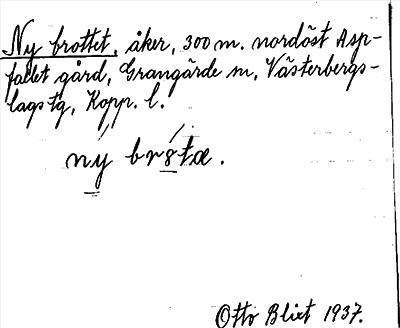 Ny brottet, åker, 300 m. nordöst Asp-
fallet gård, Grangärde sn, Västerbergs-
lags tg, Kopp. l.
ny br8tæ.
Otto Blixt 1937.